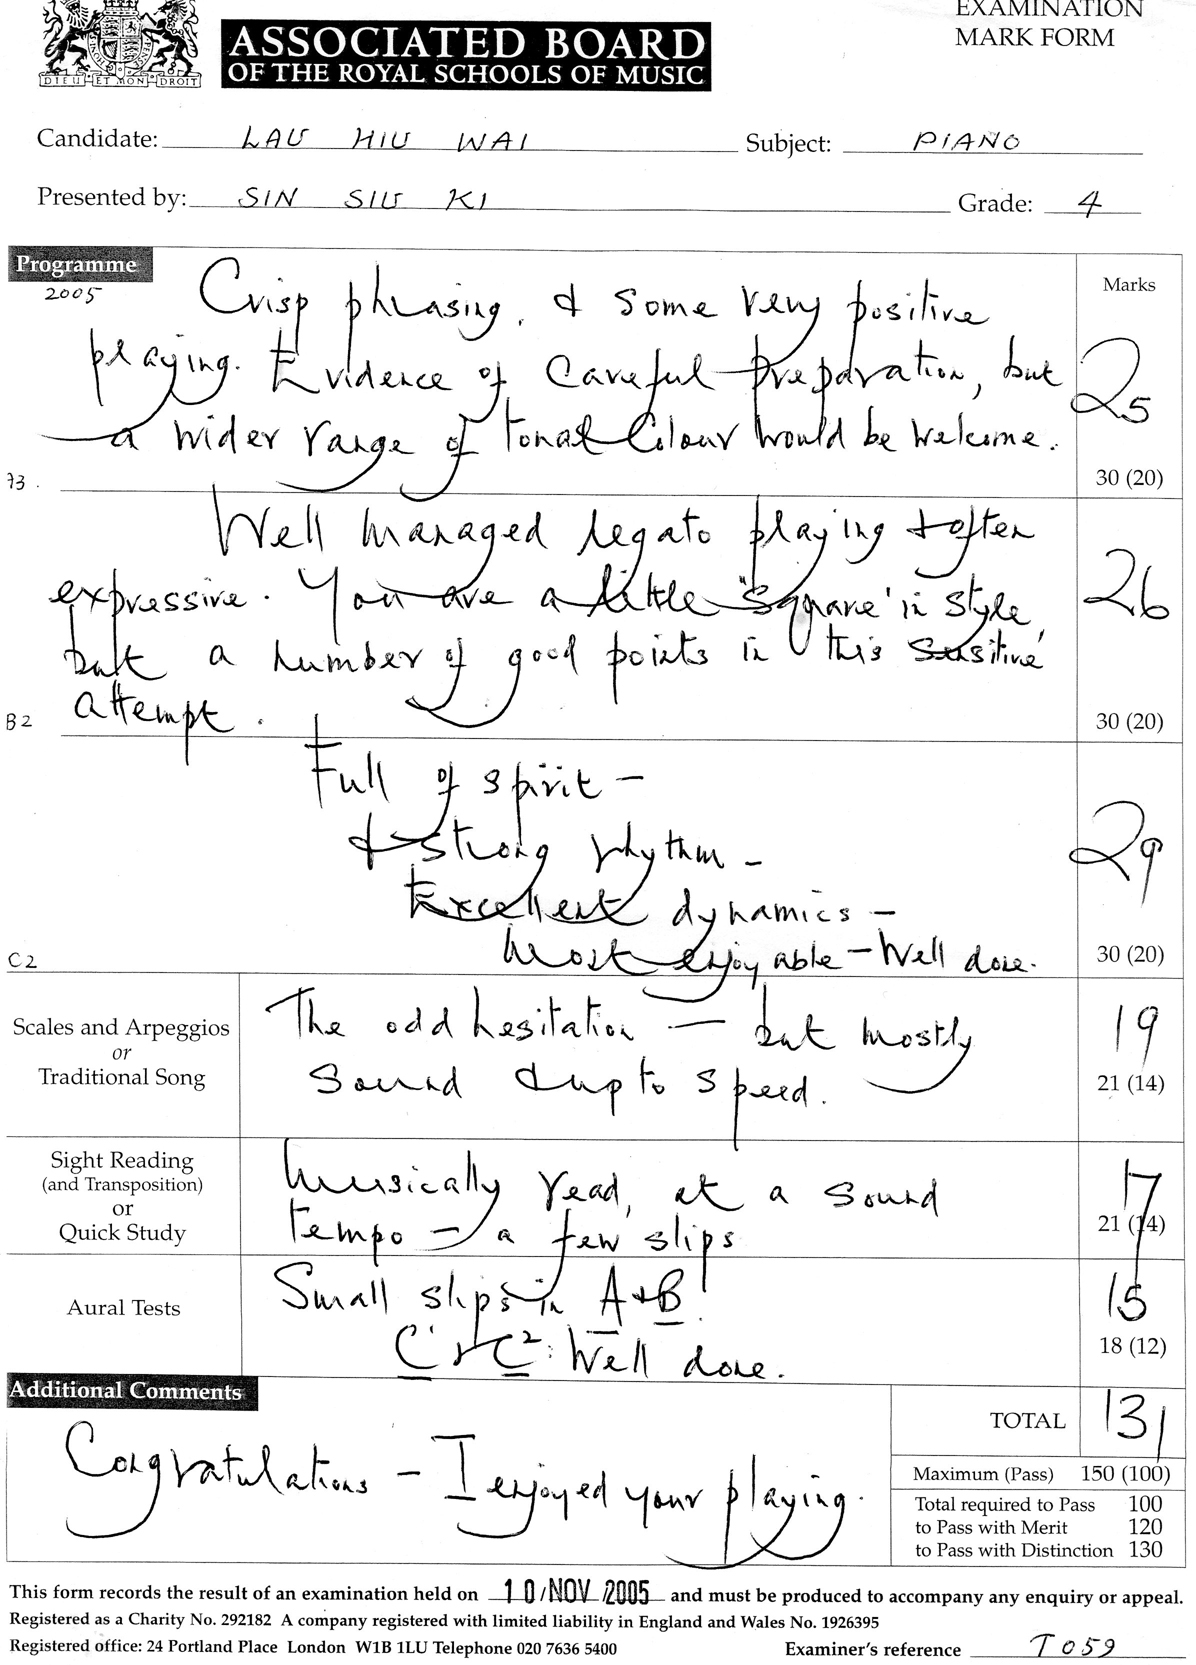 EXAMINATION
MARK FORM
DIEU ET MON DROIT
ASSOCIATED BOARD
OF THE ROYAL SCHOOLS OF MUSIC
Candidate: LAU HIU WAI Subject: PIANO
Presented by: SIN SIU KI Grade: 4
Programme
2005
Marks
Crisp phrasing, & some very positive
playing. Evidence of careful preparation, but
a wider range of tonal colour would be welcome.
25
A3. 30 (20)
Well managed legato playing & often
expressive. You are a little 'square' in style,
but a number of good points in this sensitive
attempt.
26
B2 30 (20)
Full of spirit -
& strong rhythm -
Excellent dynamics -
most enjoyable - Well done.
29
C2 30 (20)
Scales and Arpeggios
or
Traditional Song
The odd hesitation - but mostly
sound & up to speed.
19
21 (14)
Sight Reading
(and Transposition)
or
Quick Study
Musically read, at a sound
tempo - a few slips
17
21 (14)
Aural Tests
Small slips in A & B.
C1 & C2: Well done.
15
18 (12)
Additional Comments
Congratulations - I enjoyed your playing.
TOTAL 131
Maximum (Pass) 150 (100)
Total required to Pass 100
to Pass with Merit 120
to Pass with Distinction 130
This form records the result of an examination held on 10/NOV/2005 and must be produced to accompany any enquiry or appeal.
Registered as a Charity No. 292182 A company registered with limited liability in England and Wales No. 1926395
Registered office: 24 Portland Place London W1B 1LU Telephone 020 7636 5400 Examiner's reference T059